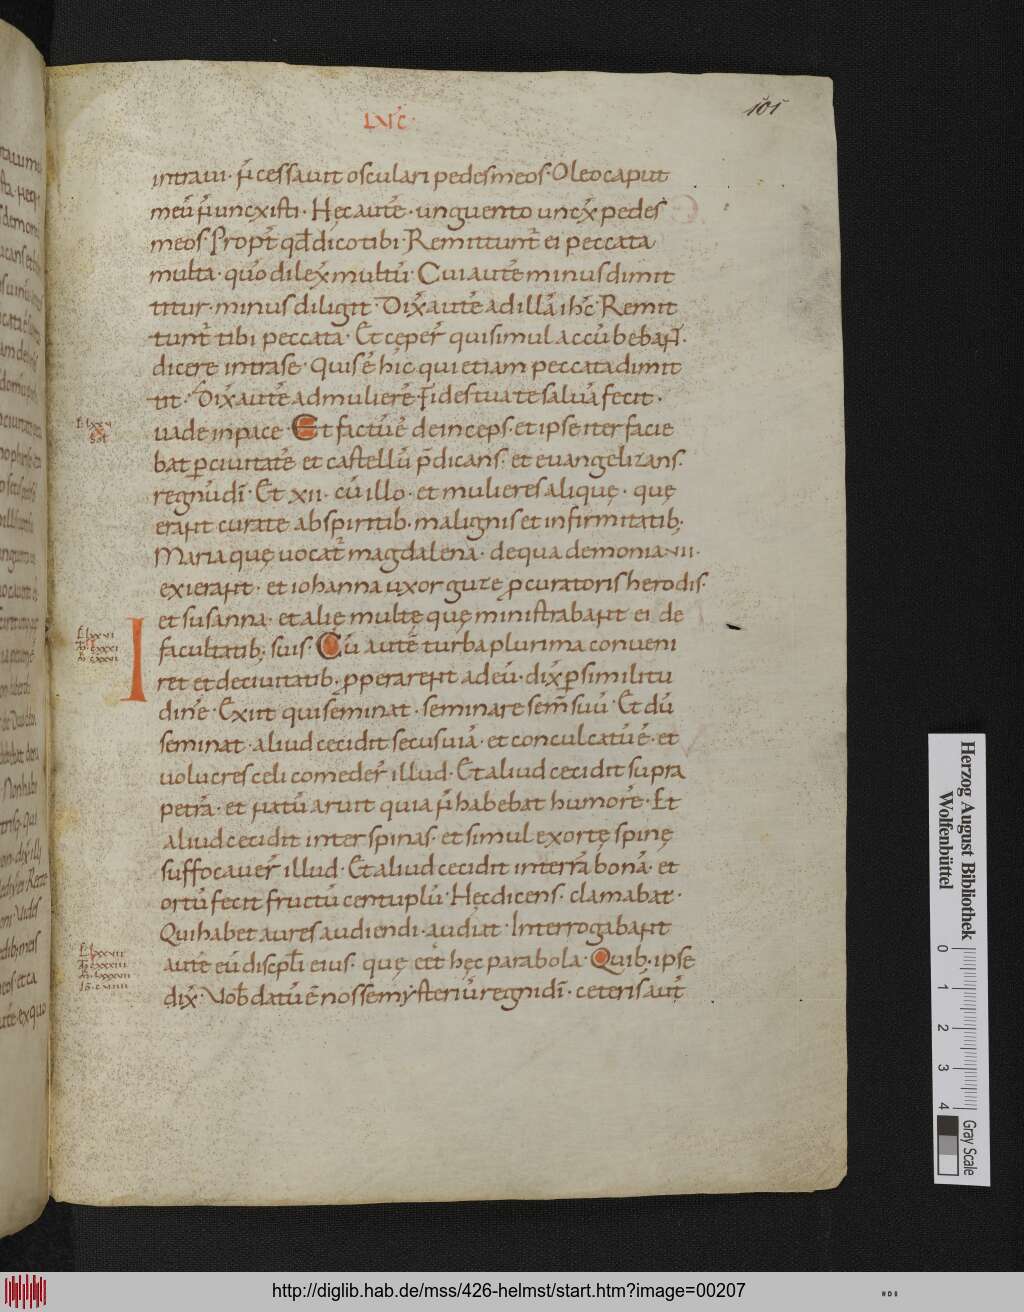 LXI c̄
101
intraui· n̄ cessauit osculari pedes meos· Oleo caput
meū n̄ unexisti· Hęc autē· unguento unex̄ pedes
meos· Propt̄ qđ dico tibi· Remittunt̄ ei peccata
multa· quō dilex̄ multū· Cui autē minus dimit
titur· minus diligit· Dix̄ autē ad illā ihc̄· Remit
tunt̄ tibi peccata· Et ceper̄ qui simul accūbebant̄·
dicere intra se· Quis ē hic qui etiam peccata dimit
tit· Dix̄ autē ad muliere̅· Fides tua te saluā fecit·
uade in pace· Et factū ē deinceps· et ipse iter facie
bat p̱ ciuitatē et castellū p̄dicans· et euangelizans·
regnū dī· Et xii· cū illo· et mulieres alique· quę
erant curate ab spiritib· malignis et infirmitatib;
Maria quę uocat̄ magdalena· de qua demonia vii·
exierant· et iohanna uxor guze p̱curatoris herodis·
et susanna· et alię multę quę ministrabant ei de
facultatib; suis· Cū autē turba plurima conueni
ret et de ciuitatib· p̱perarent ad eū· dix̄ p̱ similitu
dinē· Exiit qui seminat· seminare sem̄ suū· Et dū
seminat· aliud cecidit secus uiā· et conculcatū ē· et
uolucres celi comeder̄ illud· Et aliud cecidit supra
petrā· et natū aruit quia n̄ habebat humorē· Et
aliud cecidit inter spinas· et simul exortę spinę
suffocauer̄ illud· Et aliud cecidit in terrā bonā· et
ortū fecit fructū centuplū· Hęc dicens· clamabat·
Qui habet aures audiendi· audiat· Interrogabant
autē eū discpłi eius· quę eēt hęc parabola· Quib; ipse
dix̄· Vob̄ datū ē nosse mysteriū regni dī· ceteris aut̄
Herzog August Bibliothek
Wolfenbüttel
0 1 2 3 4
Gray Scale
http://diglib.hab.de/mss/426-helmst/start.htm?image=00207
HAB